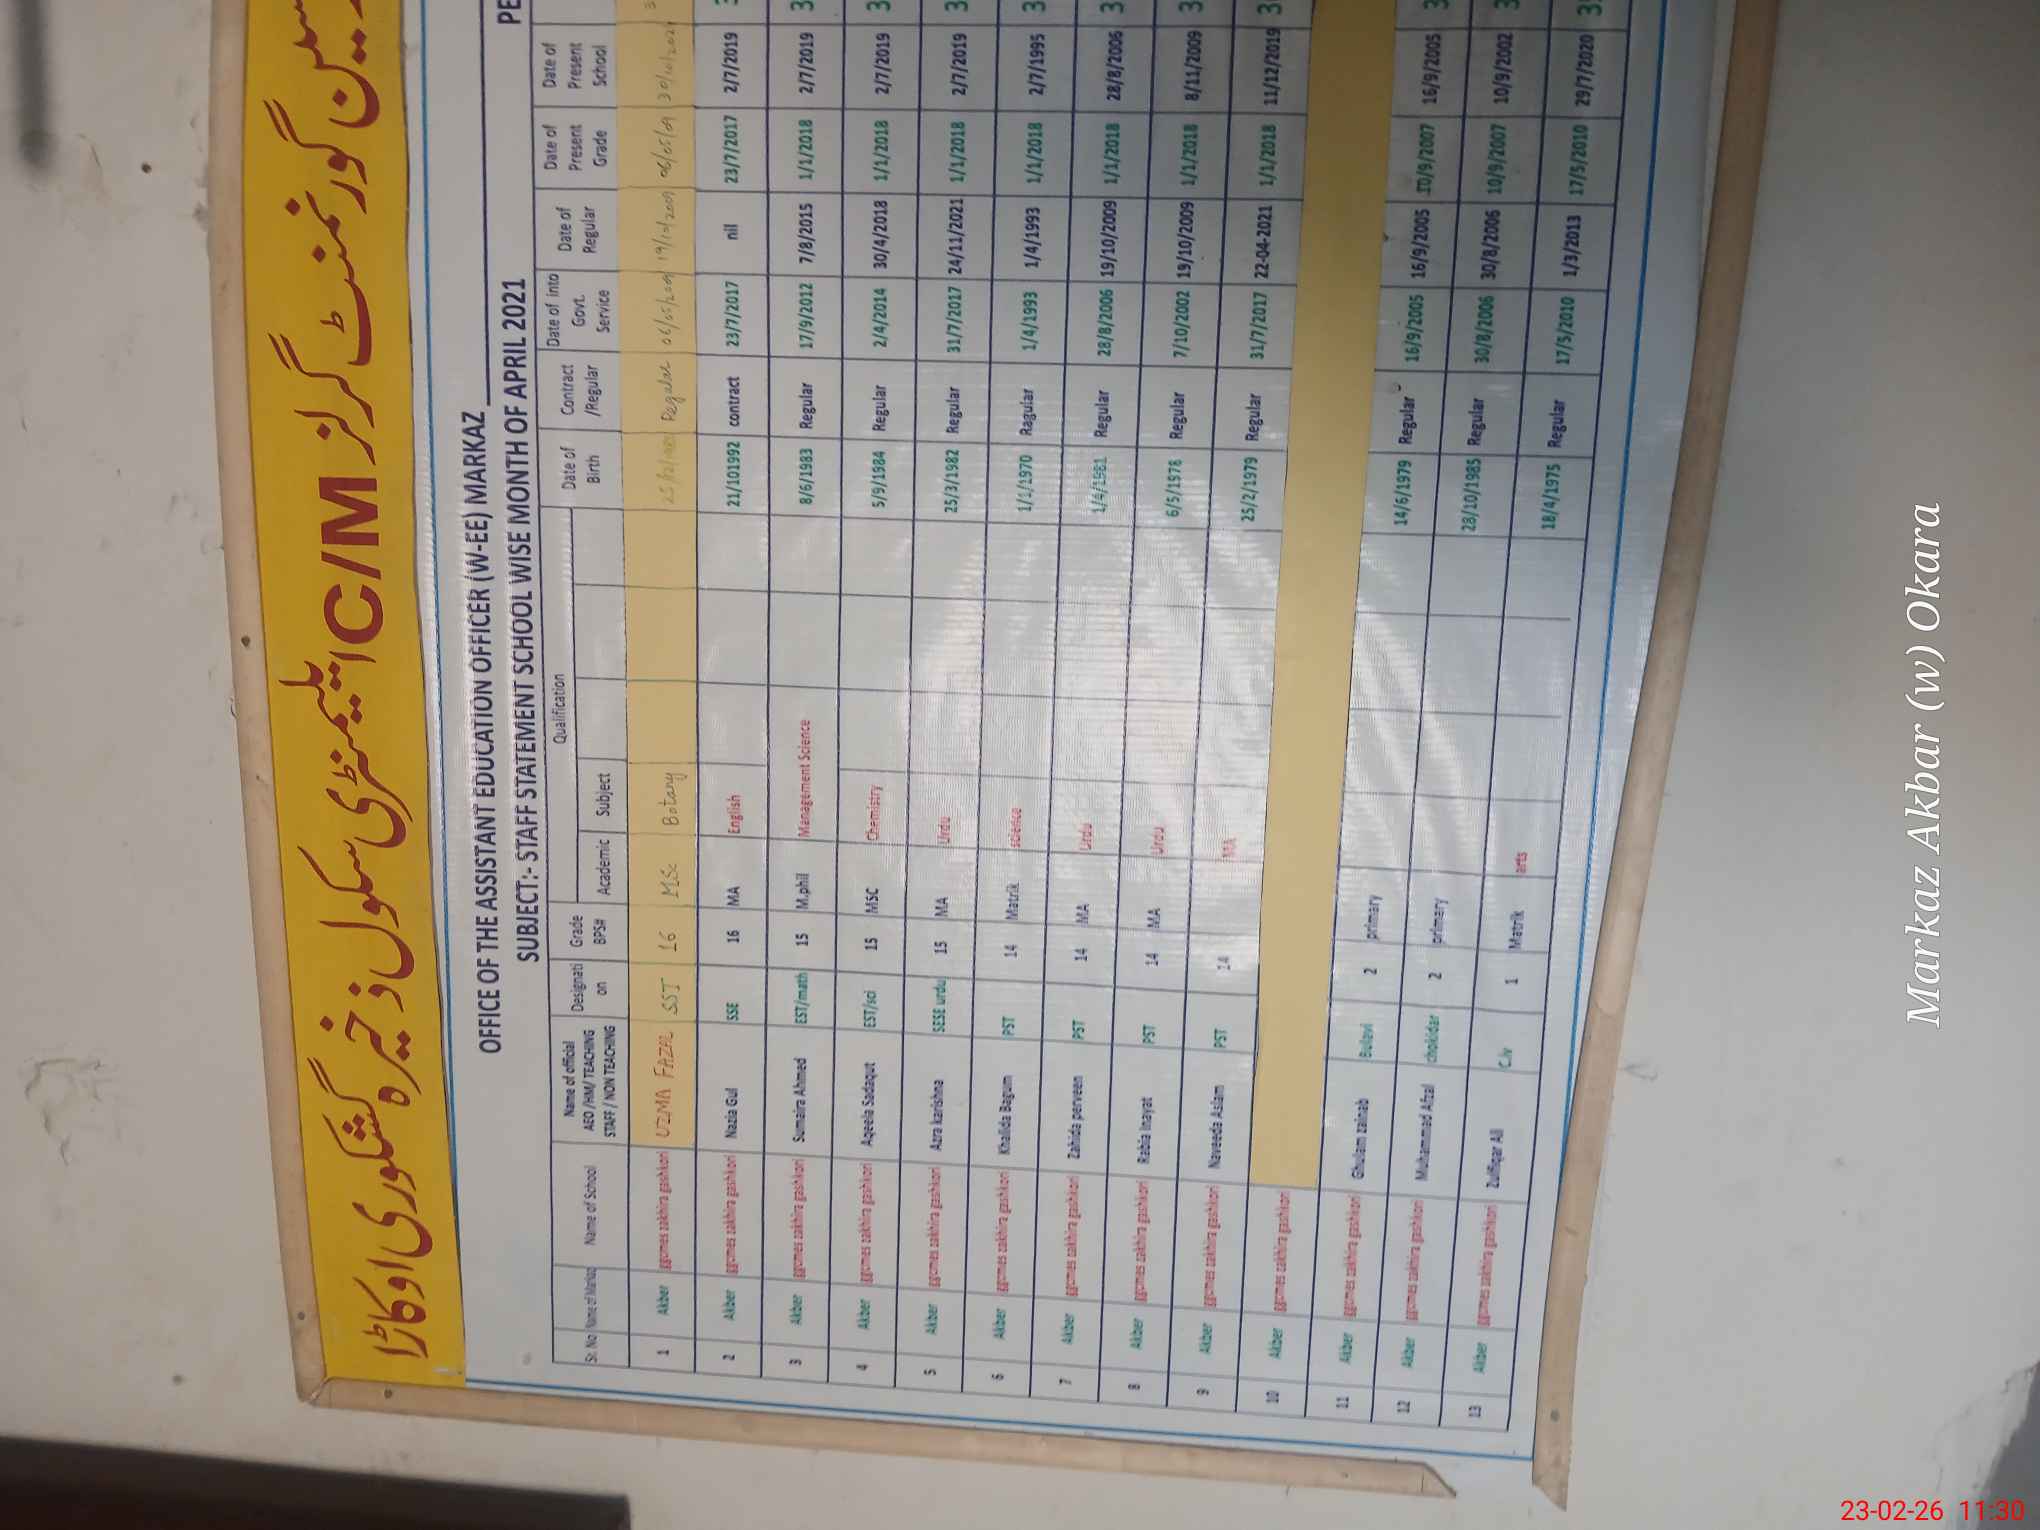 گورنمنٹ گرلز C/M ایلیمنٹری سکول ذخیرہ گشکوری اوکاڑا
OFFICE OF THE ASSISTANT EDUCATION OFFICER (W-EE) MARKAZ
SUBJECT:- STAFF STATEMENT SCHOOL WISE MONTH OF APRIL 2021 PE
Sr. No Name of Markaz Name of School Name of official AEO /HM/ TEACHING STAFF / NON TEACHING Designati on Grade BPS# Qualification Academic Subject Date of Birth Contract /Regular Date of into Govt. Service Date of Regular Date of Present Grade Date of Present School
1 Akber ggcmes zakhira gashkori UZMA FAZAL SST 16 MSc Botany Regular 06/05/2009 19/10/2009 06/05/09 30/10/2021
2 Akber ggcmes zakhira gashkori Nazia Gul SSE 16 MA English 21/101992 contract 23/7/2017 nil 23/7/2017 2/7/2019
3 Akber ggcmes zakhira gashkori Sumaira Ahmed EST/math 15 M.phil Management Science 8/6/1983 Regular 17/9/2012 7/8/2015 1/1/2018 2/7/2019 3
4 Akber ggcmes zakhira gashkori Aqeela Sadaqut EST/sci 15 MSC Chemistry 5/9/1984 Regular 2/4/2014 30/4/2018 1/1/2018 2/7/2019 3
5 Akber ggcmes zakhira gashkori Azra karishna SESE urdu 15 MA Urdu 25/3/1982 Regular 31/7/2017 24/11/2021 1/1/2018 2/7/2019 3
6 Akber ggcmes zakhira gashkori Khalida Bagum PST 14 Matrik science 1/1/1970 Ragular 1/4/1993 1/4/1993 1/1/2018 2/7/1995 3
7 Akber ggcmes zakhira gashkori Zahida perveen PST 14 MA Urdu 1/4/1981 Regular 28/8/2006 19/10/2009 1/1/2018 28/8/2006 3
8 Akber ggcmes zakhira gashkori Rabia Inayat PST 14 MA Urdu 6/5/1978 Regular 7/10/2002 19/10/2009 1/1/2018 8/11/2009 3
9 Akber ggcmes zakhira gashkori Naveeda Aslam PST 14 MA 25/2/1979 Regular 31/7/2017 22-04-2021 1/1/2018 11/12/2019 3
10 Akber ggcmes zakhira gashkori
11 Akber ggcmes zakhira gashkori Ghulam zainab Bulavi 2 primary 14/6/1979 Regular 16/9/2005 16/9/2005 10/9/2007 16/9/2005 3
12 Akber ggcmes zakhira gashkori Muhammad Afzal chokidar 2 primary 28/10/1985 Regular 30/8/2006 30/8/2006 10/9/2007 10/9/2002 3
13 Akber ggcmes zakhira gashkori Zulfiqar Ali C.iv 1 Matrik arts 18/4/1975 Regular 17/5/2010 1/3/2013 17/5/2010 29/7/2020 3
Markaz Akbar (w) Okara
23-02-26 11:30